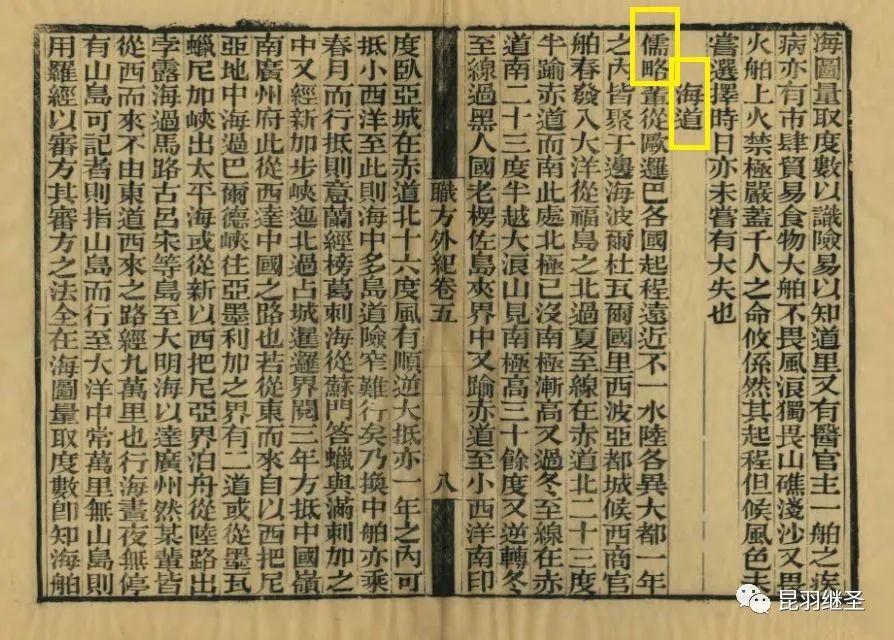 海圖量取度數以識險易以知道里又有醫官主一舶之疾
病亦有市肆貿易食物大舶不畏風浪獨畏山礁淺沙又畏
火舶上火禁極嚴蓋千人之命攸係然其起程但候風色未
嘗選擇時日亦未嘗有大失也
海道
儒略輩從歐邏巴各國起程遠近不一水陸各異大都一年
之內皆聚于邊海波爾杜瓦爾國里西波亞都城候西商官
舶春發入大洋從福島之北過夏至線在赤道北二十三度
半踰赤道而南此處北極已沒南極漸高又過冬至線在赤
道南二十三度半越大浪山見南極高三十餘度又逆轉冬
至線過黑人國老楞佐島夾界中又踰赤道至小西洋南印
職方外紀卷五
八
度臥亞城在赤道北十六度風有順逆大抵亦一年之內可
抵小西洋至此則海中多島道險窄難行矣乃換中舶亦乘
春月而行抵則意蘭經榜葛剌海從蘇門答蠟與滿剌加之
中又經新加步峽迤北過占城暹邏界閱三年方抵中國嶺
南廣州府此從西達中國之路也若從東而來自以西把尼
亞地中海過巴爾德峽往亞墨利加之界有二道或從墨瓦
蠟尼加峽出太平海或從新以西把尼亞界泊舟從陸路出
孛露海過馬路古呂宋等島至大明海以達廣州然某輩皆
從西而來不由東道西來之路經九萬里也行海晝夜無停
有山島可記者則指山島而行至大洋中常萬里無山島則
用羅經以審方其審方之法全在海圖量取度數即知海舶
昆羽继圣